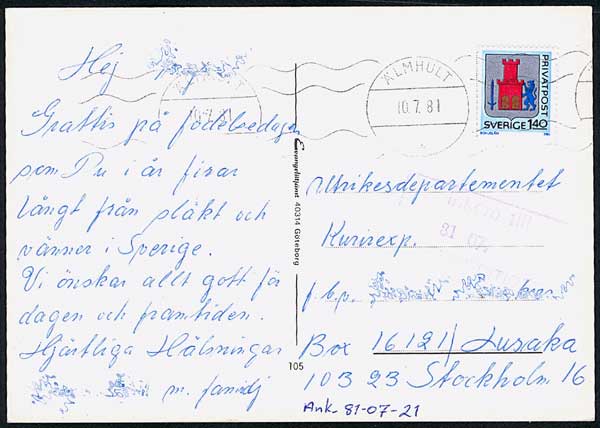 Hej
Grattis på födelsedagen
som Du i år firar
långt från släkt och
vänner i Sverige.
Vi önskar allt gott för
dagen och framtiden.
Hjärtliga Hälsningar
m. familj
ÄLMHULT
10.7.81
ÄLMHULT
10.7.81
PRIVATPOST
SVERIGE 140
40314 Göteborg
105
Utrikesdepartementet
Kurirexp.
81 07
f.b.p.
Box 16121/Lusaka
103 23 Stockholm 16
Ank- 81-07-21